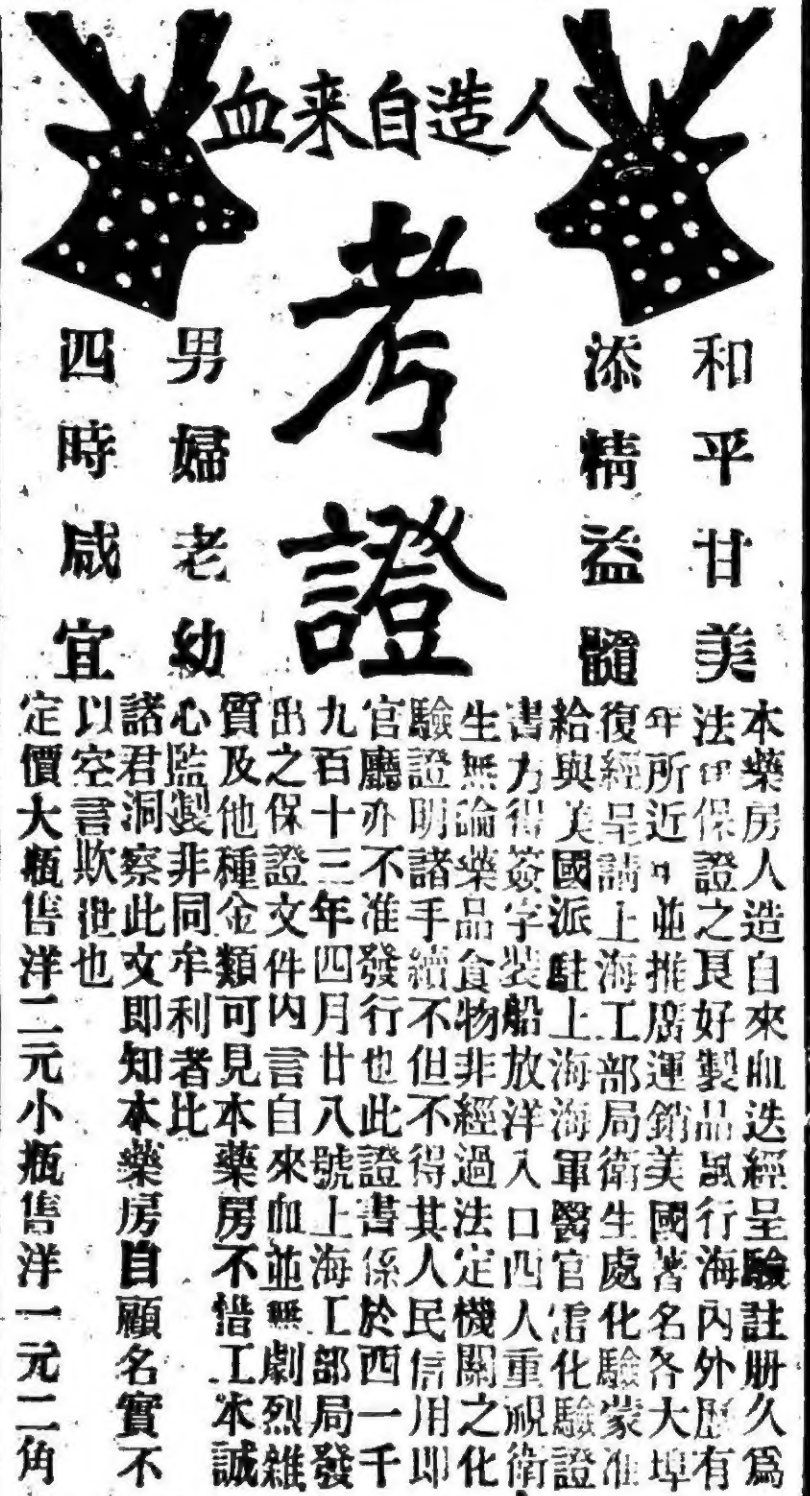 人造自来血
考證
和平甘美
添精益髓
男婦老幼
四時咸宜
本藥房人造自來血迭經呈驗註册久爲
法律保證之良好製品風行海內外歷有
年所近年並推廣運銷美國著名各大埠
復經呈請上海工部局衛生處化驗蒙准
給與美國派駐上海海軍醫官雷化驗證
書方得簽字裝船放洋入口西人重視衛
生無論藥品食物非經過法定機關之化
驗證明諸手續不但不得其人民信用即
官廳亦不准發行也此證書係於西一千
九百十三年四月廿八號上海工部局發
出之保證文件內言自來血並無劇烈雜
質及他種金類可見本藥房不惜工本誠
心監製非同牟利者比
諸君洞察此文即知本藥房自顧名實不
以空言欺世也
定價大瓶售洋二元小瓶售洋一元二角